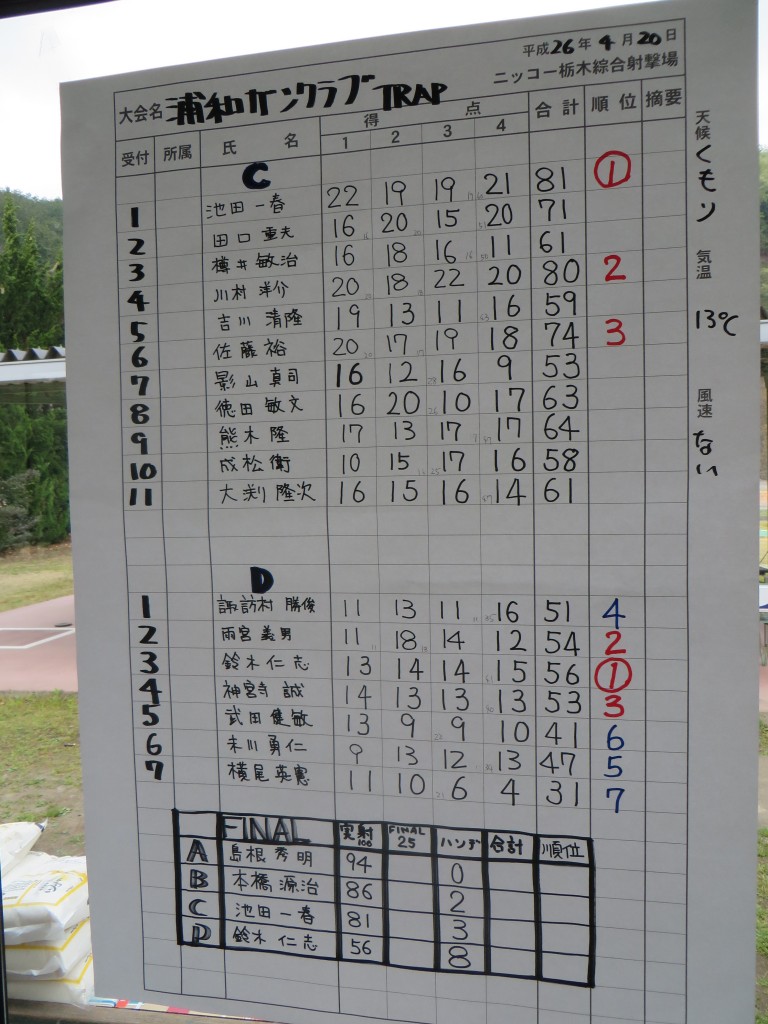 平成26年4月20日
ニッコー栃木綜合射撃場
大会名 浦和ガンクラブ TRAP
受付 所属 氏名 得点 1 2 3 4 合計 順位 摘要
C
1 池田一春 22 19 19 21 81 1
2 田口重夫 16 20 15 20 71
3 樽井敏治 16 18 16 11 61
4 川村洋介 20 18 22 20 80 2
5 吉川清隆 19 13 11 16 59
6 佐藤裕 20 17 19 18 74 3
7 影山真司 16 12 16 9 53
8 徳田敏文 16 20 10 17 63
9 熊木隆 17 13 17 17 64
10 成松衛 10 15 17 16 58
11 大渕隆次 16 15 16 14 61
D
1 諏訪村勝俊 11 13 11 16 51 4
2 雨宮義男 11 18 14 12 54 2
3 鈴木仁志 13 14 14 15 56 1
4 神宮寺誠 14 13 13 13 53 3
5 武田隻敏 13 9 9 10 41 6
6 未川勇仁 9 13 12 13 47 5
7 横尾英憲 11 10 6 4 31 7
FINAL 実射100 FINAL 25 ハンデ 合計 順位
A 島根秀明 94 0
B 本橋源治 86 2
C 池田一春 81 3
D 鈴木仁志 56 8
天候 くもり
気温 13℃
風速 ない